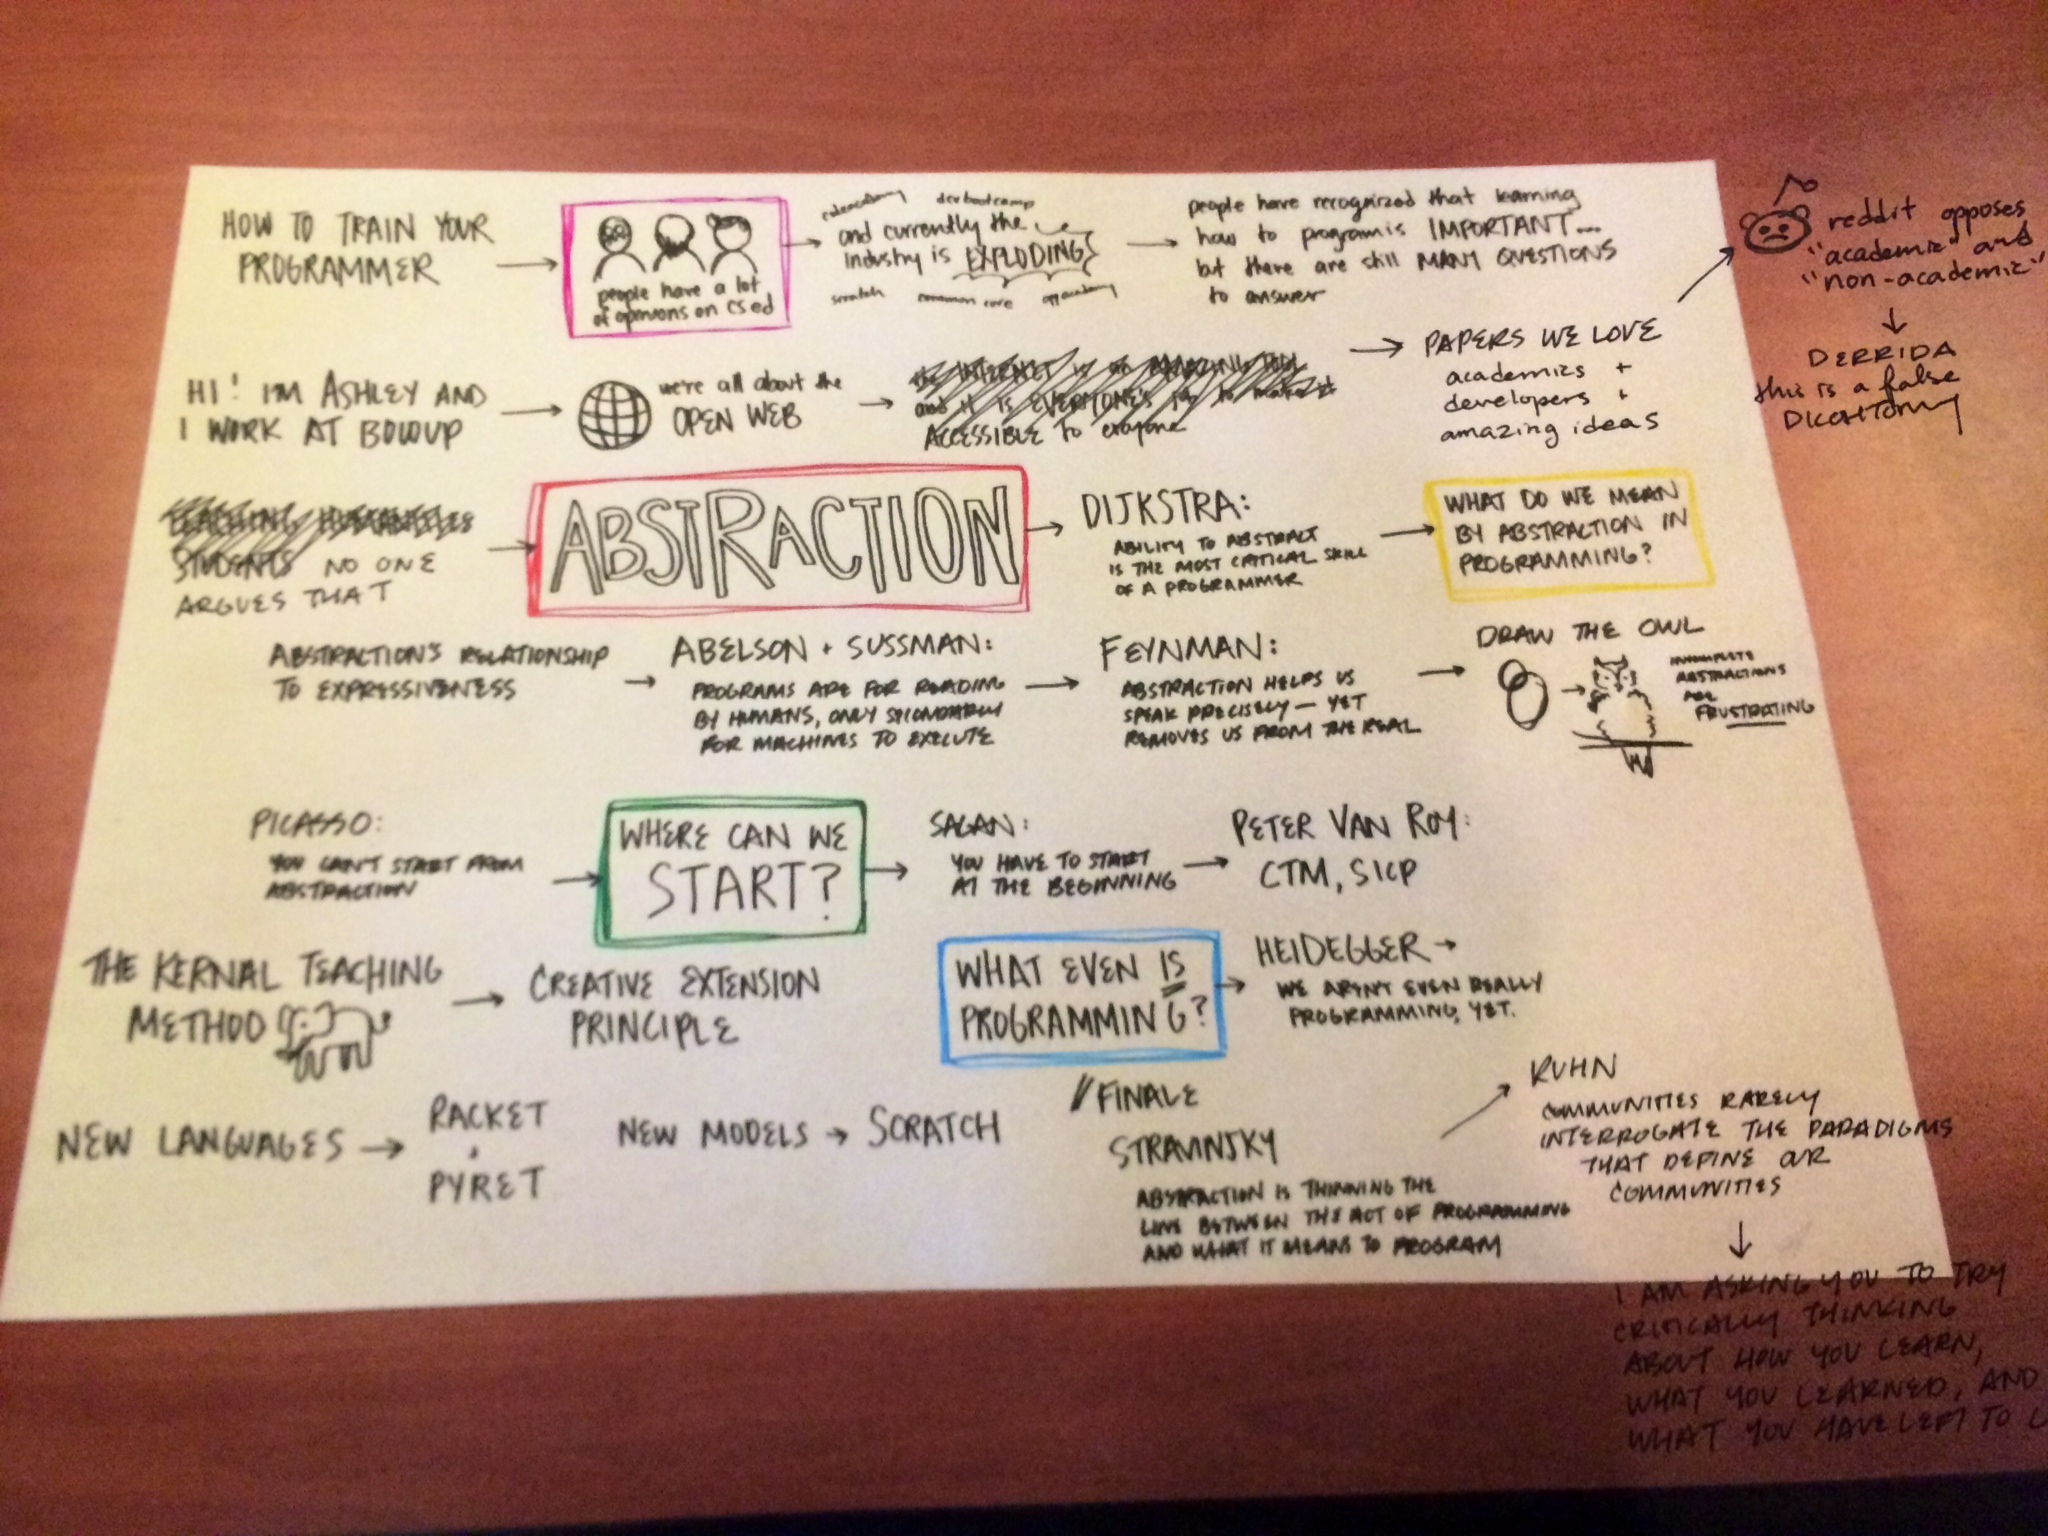 HOW TO TRAIN YOUR
PROGRAMMER
people have a lot
of opinions on cs ed
codecademy devbootcamp
and currently the
industry is EXPLODING
scratch common core appacademy
people have recognized that learning
how to program is IMPORTANT...
but there are still MANY QUESTIONS
to answer
HI! I'M ASHLEY AND
I WORK AT BOCOUP
we're all about the
OPEN WEB
the INTERNET is an AMAZING tool
and it is EVERYONE'S job to make it
ACCESSIBLE to everyone
PAPERS WE LOVE
academics +
developers +
amazing ideas
reddit opposes
"academic" and
"non-academic"
DERRIDA
this is a false
DICOHTOMY
TEACHING
STUDENTS NO ONE
ARGUES THAT
ABSTRACTION
DIJKSTRA:
ABILITY TO ABSTRACT
IS THE MOST CRITICAL SKILL
OF A PROGRAMMER
WHAT DO WE MEAN
BY ABSTRACTION IN
PROGRAMMING?
ABSTRACTION'S RELATIONSHIP
TO EXPRESSIVENESS
ABELSON + SUSSMAN:
PROGRAMS ARE FOR READING
BY HUMANS, ONLY SECONDARILY
FOR MACHINES TO EXECUTE
FEYNMAN:
ABSTRACTION HELPS US
SPEAK PRECISELY — YET
REMOVES US FROM THE REAL
DRAW THE OWL
INCOMPLETE
ABSTRACTIONS
ARE
FRUSTRATING
PICASSO:
YOU CAN'T START FROM
ABSTRACTION
WHERE CAN WE
START?
SAGAN:
YOU HAVE TO START
AT THE BEGINNING
PETER VAN ROY:
CTM, SICP
THE KERNAL TEACHING
METHOD
CREATIVE EXTENSION
PRINCIPLE
WHAT EVEN IS
PROGRAMMING?
HEIDEGGER →
WE AREN'T EVEN REALLY
PROGRAMMING, YET.
NEW LANGUAGES →
RACKET
+
PYRET
NEW MODELS → SCRATCH
//FINALE
STRAVINSKY
ABSTRACTION IS THINNING THE
LINE BETWEEN THE ACT OF PROGRAMMING
AND WHAT IT MEANS TO PROGRAM
KUHN
COMMUNITIES RARELY
INTERROGATE THE PARADIGMS
THAT DEFINE OUR
COMMUNITIES
I AM ASKING YOU TO TRY
CRITICALLY THINKING
ABOUT HOW YOU LEARN,
WHAT YOU LEARNED, AND
WHAT YOU HAVE LEFT TO